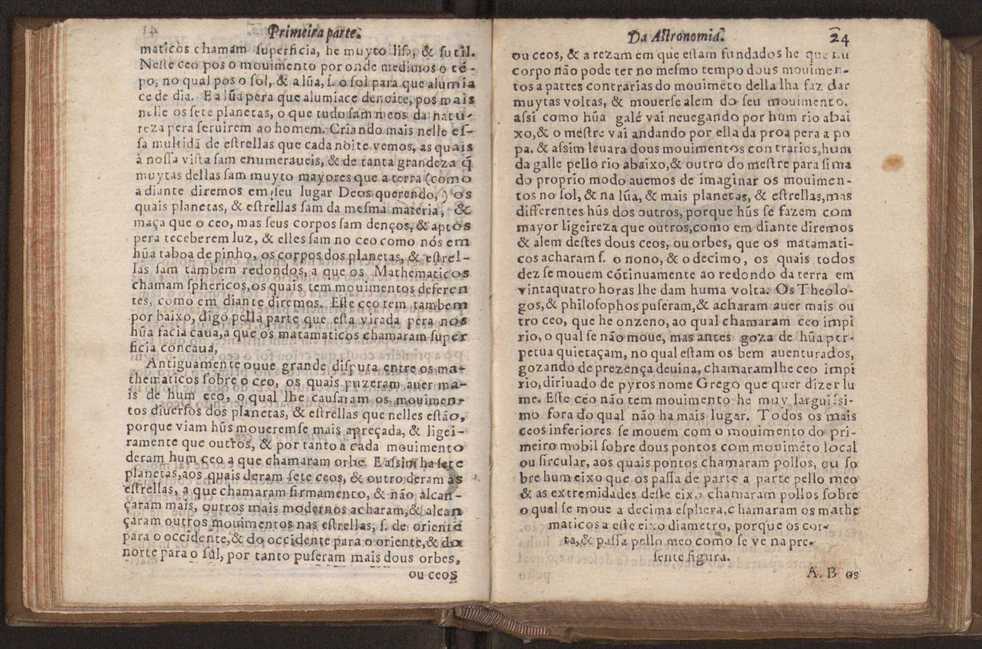 Primeira parte.
maticos chamam superficia, he muyto liso, & sutil.
Neste ceo pos o mouimento por onde medimos o tẽ-
po, no qual pos o sol, & a lũa, s. o sol para que alumia
ce de dia. E a lũa pera que alumiace denoite, pos mais
nelle os sete planetas, o que tudo sam meos da natu-
reza pera seruirem ao homem. Criando mais nelle es-
sa multidã de estrellas que cada noite vemos, as quais
à nossa vista sam enumeraueis, & de tanta grandeza q̃
muytas dellas sam muyto mayores que a terra (como
a diante diremos em seu lugar Deos querendo,) os
quais planetas, & estrellas sam da mesma materia, &
maça que o ceo, mas seus corpos sam denços, & aptos
pera teceberem luz, & elles sam no ceo como nós em
hũa taboa de pinho, os corpos dos planetas, & estrel-
las sam tambem redondos, a que os Mathematicos
chamam sphericos, os quais tem mouimentos deferen
tes, como em diante diremos. Este ceo tem tambem
por baixo, digo pella parte que esta virada pera nos
hũa facia caua, a que os matamaticos chamaram super
ficia concaua,
Antiguamente ouue grande disputa entre os ma-
thematicos sobre o ceo, os quais puzeram auer ma-
is de hum ceo, o qual lhe causaram os mouimen-
tos diuersos dos planetas, & estrellas que nelles estão,
porque viam hũs mouerem se mais apreçada, & ligei-
ramente que outros, & por tanto a cada mouimento
deram hum ceo a que chamaram orbe. E assim ha sete
planetas, aos quais deram sete ceos, & outro deram às
estrellas, a que chamaram firmamento, & não alcan-
çaram mais, outros mais modernos acharam, & alcan
çaram outros mouimentos nas estrellas, s. de oriente
para o occidente, & do occidente para o oriente, & do
norte para o sul, por tanto puseram mais dous orbes,
ou ceos
Da Astronomia. 24
ou ceos, & a rezam em que estam fundados he que hũ
corpo não pode ter no mesmo tempo dous mouimen-
tos a pattes contrarias do mouimẽto della lha faz dar
muytas voltas, & mouerse alem do seu mouimento.
assi como hũa galé vai neuegando por hum rio abai
xo, & o mestre vai andando por ella da proa pera a po
pa. & assim leuara dous mouimentos contrarios, hum
da galle pello rio abaixo, & outro do mestre para sima
do proprio modo auemos de imaginar os mouimen-
tos no sol, & na lũa, & mais planetas, & estrellas, mas
differentes hũs dos outros, porque hũs se fazem com
mayor ligeireza que outros, como em diante diremos
& alem destes dous ceos, ou orbes, que os matamati-
cos acharam s. o nono, & o decimo, os quais todos
dez se mouem cõtinuamente ao redondo da terra em
vintaquatro horas lhe dam huma volta. Os Theolo-
gos, & philosophos puseram, & acharam auer mais ou
tro ceo, que he onzeno, ao qual chamaram ceo impi
rio, o qual se não moue, mas antes goza de hũa per-
petua quietaçam, no qual estam os bem auenturados,
gozando de prezença deuina, chamaram lhe ceo impi
rio, diriuado de pyros nome Grego que quer dizer lu
me. Este ceo não tem mouimento he muy larguissi-
mo fora do qual não ha mais lugar. Todos os mais
ceos inferiores se mouem com o mouimento do pri-
meiro mobil sobre dous pontos com mouimẽto local
ou sircular, aos quais pontos chamaram pollos, ou so
bre hum eixo que os passa de parte a parte pello meo
& as extremidades deste eixo chamaram pollos sobre
o qual se moue a decima esphera, chamaram os mathe
maticos a este eixo diametro, porque os cor-
ta, & passa pello meo como se ve na pre-
sente figura.
A. B os